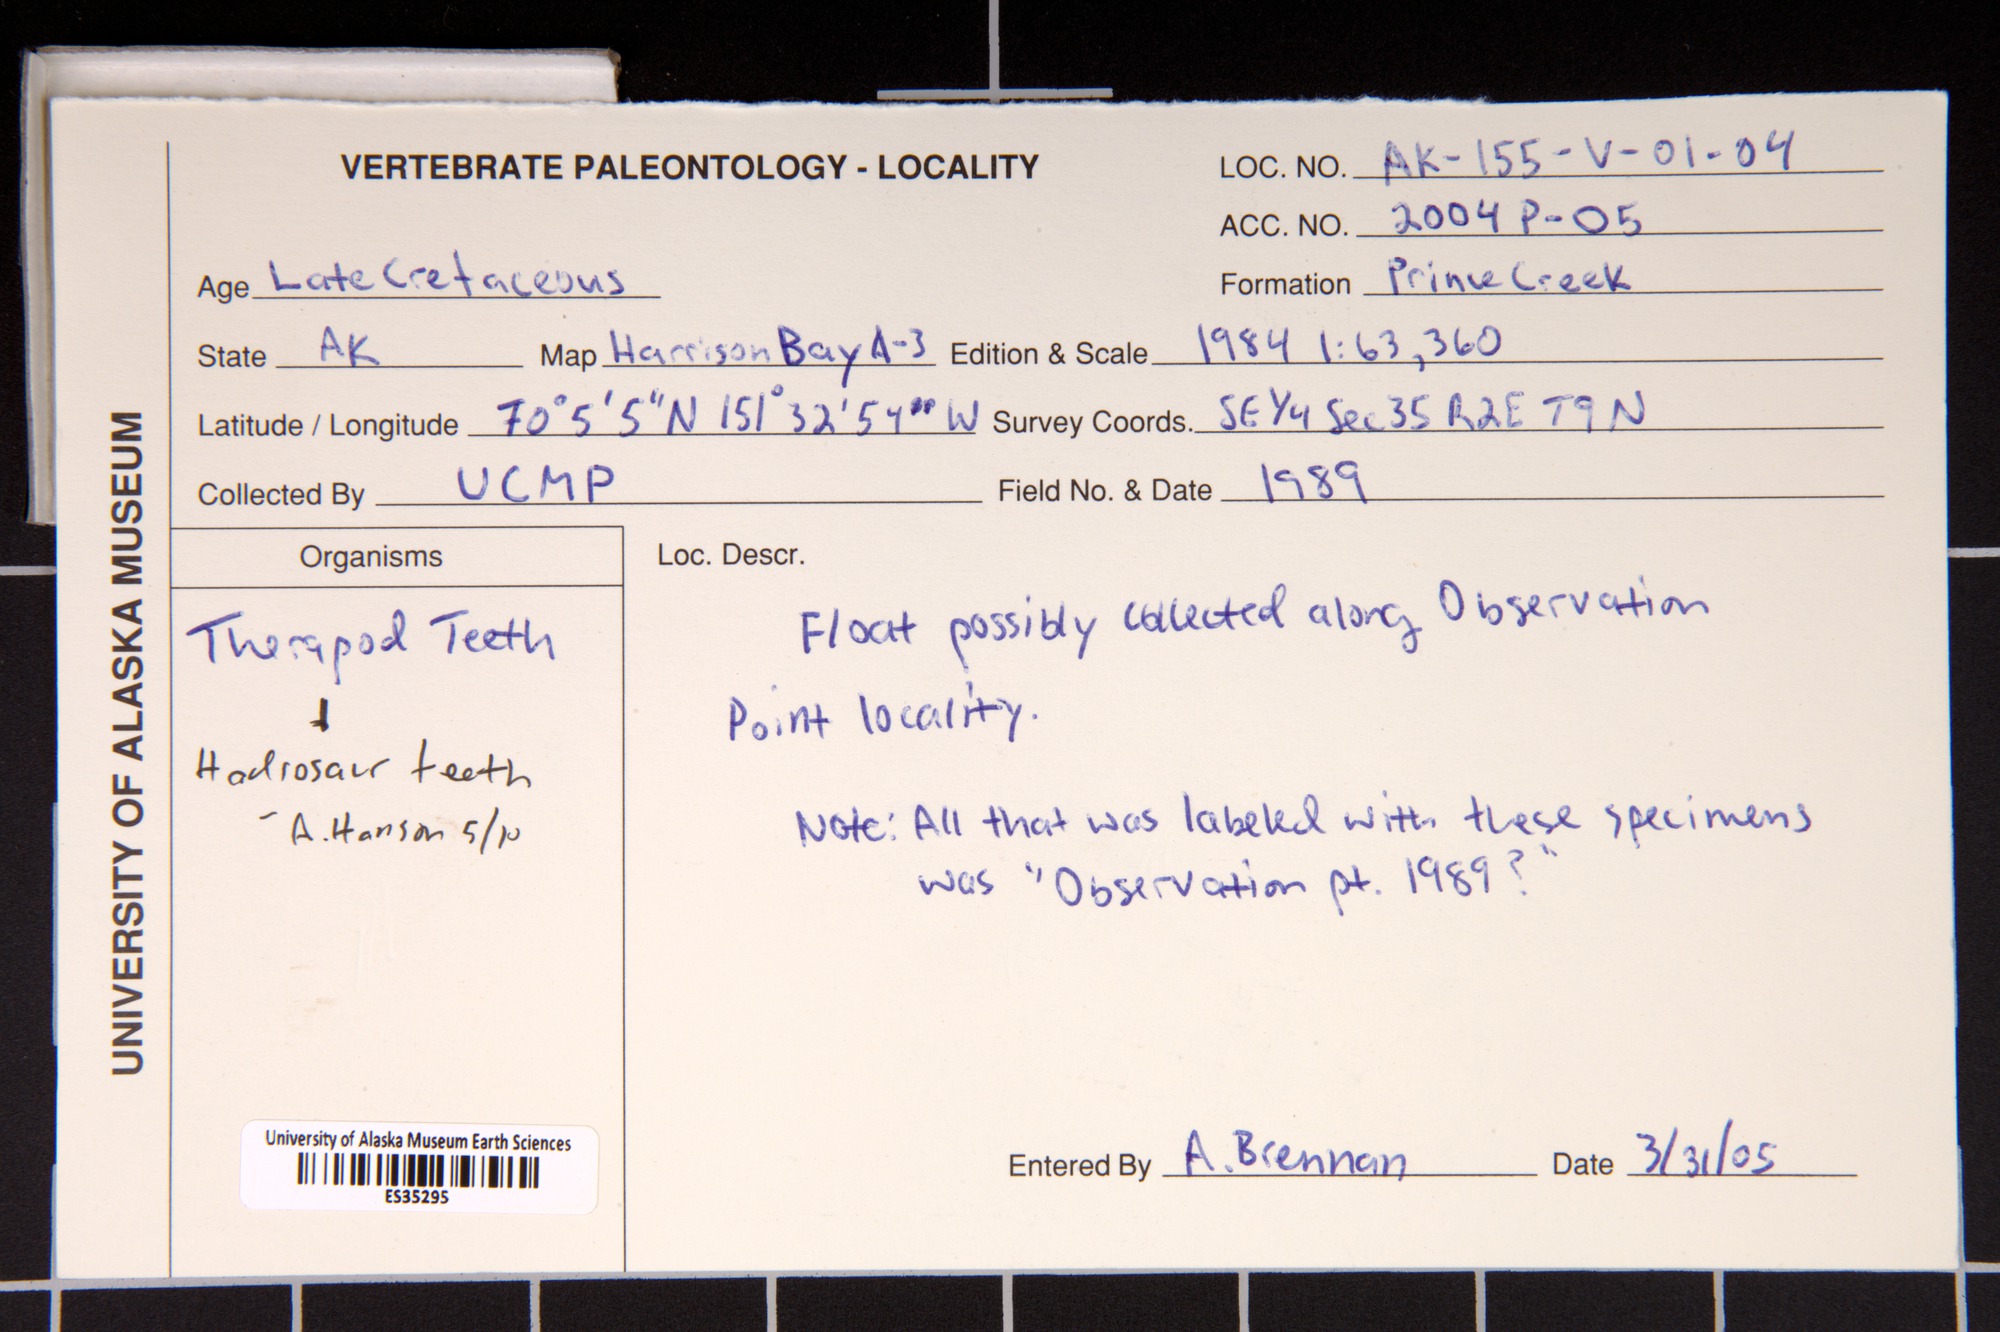 UNIVERSITY OF ALASKA MUSEUM
VERTEBRATE PALEONTOLOGY - LOCALITY
LOC. NO. AK-155-V-01-04
ACC. NO. 2004P-05
Age Late Cretaceous
Formation Prince Creek
State AK Map Harrison Bay A-3 Edition & Scale 1984 1:63,360
Latitude / Longitude 70°5'5"N 151°32'54"W Survey Coords. SE 1/4 Sec 35 R2E T9N
Collected By UCMP Field No. & Date 1989
Organisms
Therapod Teeth
↓
Hadrosaur teeth
- A. Hanson 5/10
Loc. Descr.
Float possibly collected along Observation
Point locality.
Note: All that was labeled with these specimens
was "Observation pt. 1989?"
University of Alaska Museum Earth Sciences
ES35295
Entered By A. Brennan Date 3/31/05